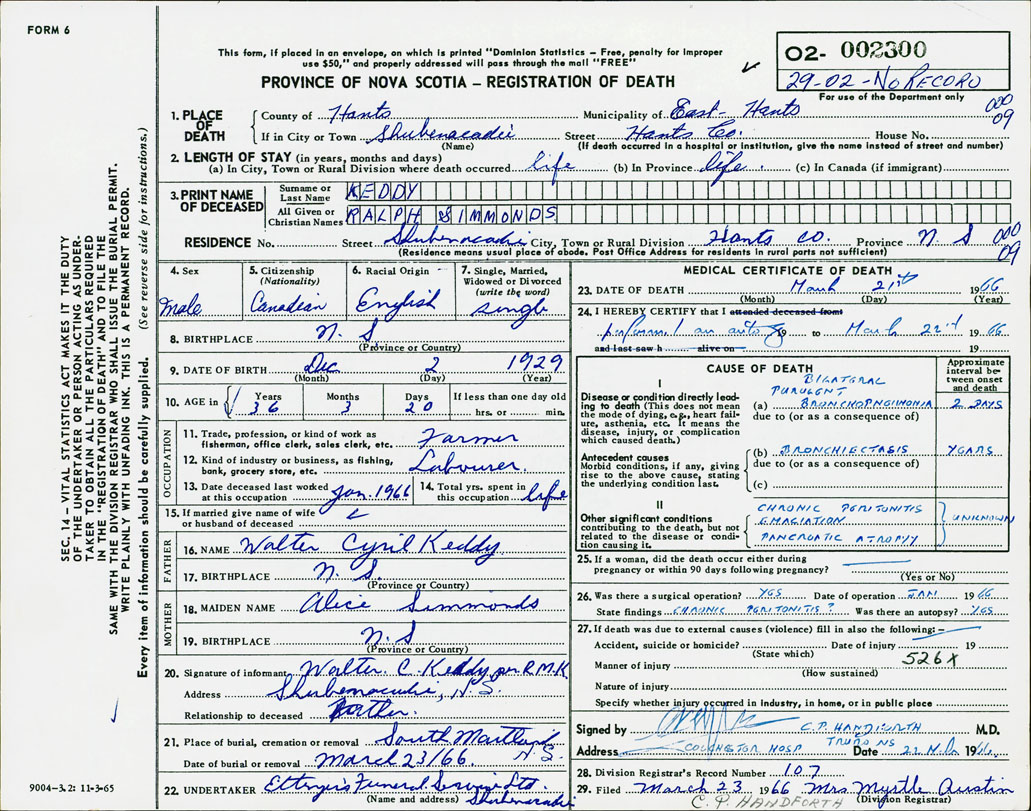 FORM 6
This form, if placed in an envelope, on which is printed "Dominion Statistics – Free, penalty for improper
use $50," and properly addressed will pass through the mail "FREE"
PROVINCE OF NOVA SCOTIA – REGISTRATION OF DEATH
O2- 002300
29-02-No RECORD
For use of the Department only
000
09
1. PLACE OF DEATH
County of Hants Municipality of East- Hants
If in City or Town Shubenacadie Street Hants Co. House No.
(Name) (If death occurred in a hospital or institution, give the name instead of street and number)
2. LENGTH OF STAY (in years, months and days)
(a) In City, Town or Rural Division where death occurred life (b) In Province life. (c) In Canada (if immigrant)
3. PRINT NAME OF DECEASED
Surname or Last Name KEDDY
All Given or Christian Names RALPH SIMMONDS
RESIDENCE No. Street Shubenacadie City, Town or Rural Division Hants Co. Province N S
000
09
(Residence means usual place of abode. Post Office Address for residents in rural parts not sufficient)
4. Sex
Male
5. Citizenship
(Nationality)
Canadian
6. Racial Origin
English
7. Single, Married,
Widowed or Divorced
(write the word)
single
8. BIRTHPLACE N. S
(Province or Country)
9. DATE OF BIRTH Dec 2 1929
(Month) (Day) (Year)
10. AGE in Years Months Days If less than one day old
36 3 20 hrs. or min.
OCCUPATION
11. Trade, profession, or kind of work as
fisherman, office clerk, sales clerk, etc. Farmer
12. Kind of industry or business, as fishing,
bank, grocery store, etc. Labourer.
13. Date deceased last worked
at this occupation Jan. 1966
14. Total yrs. spent in
this occupation life
15. If married give name of wife
or husband of deceased
FATHER
16. NAME Walter Cyril Keddy
17. BIRTHPLACE N. S.
(Province or Country)
MOTHER
18. MAIDEN NAME Alice Simmonds
19. BIRTHPLACE N. S
(Province or Country)
20. Signature of informant Walter C. Keddy per R.M.K
Address Shubenacadie, N.S.
Relationship to deceased
21. Place of burial, cremation or removal South N S.
Date of burial or removal March 23/66
22. UNDERTAKER Ettinger's Funeral Service Ltd
(Name and address) Shubenacadie
MEDICAL CERTIFICATE OF DEATH
23. DATE OF DEATH March 21st 1966
(Month) (Day) (Year)
24. I HEREBY CERTIFY that I attended deceased from
perform / an autopsy 19 to March 22nd 1966
and last saw h alive on 19
CAUSE OF DEATH
Approximate
interval be-
tween onset
and death
I
Disease or condition directly lead-
ing to death (This does not mean
the mode of dying, e.g., heart fail-
ure, asthenia, etc. It means the
disease, injury, or complication
which caused death.)
BILATERAL
PURULENT
(a) BRONCHOPNEUMONIA 2 DAYS
due to (or as a consequence of)
Antecedent causes
Morbid conditions, if any, giving
rise to the above cause, stating
the underlying condition last.
(b) BRONCHIECTASIS YEARS
due to (or as a consequence of)
(c)
II
Other significant conditions
contributing to the death, but not
related to the disease or condi-
tion causing it.
CHRONIC PERITONITIS
EMACIATION
PANCREATIC ATROPHY
UNKNOWN
25. If a woman, did the death occur either during
pregnancy or within 90 days following pregnancy?
(Yes or No)
26. Was there a surgical operation? YES Date of operation JAN 1966
State findings CHRONIC PERITONITIS? Was there an autopsy? YES
27. If death was due to external causes (violence) fill in also the following:–
Accident, suicide or homicide? Date of injury 19
(State which)
526X
Manner of injury
(How sustained)
Nature of injury
Specify whether injury occurred in industry, in home, or in public place
Signed by C.P. HANDFORTH M.D.
Address COLCHESTER HOSP TRURO NS Date 1966
28. Division Registrar's Record Number 107
29. Filed March 23 1966 Mrs Myrtle Austin
(Division Registrar)
C.P. HANDFORTH
SEC. 14 – VITAL STATISTICS ACT MAKES IT THE DUTY
OF THE UNDERTAKER OR PERSON ACTING AS UNDER-
TAKER TO OBTAIN ALL THE PARTICULARS REQUIRED
IN THE "REGISTRATION OF DEATH" AND TO FILE THE
SAME WITH THE DIVISION REGISTRAR WHO SHALL ISSUE THE BURIAL PERMIT.
WRITE PLAINLY WITH UNFADING INK. THIS IS A PERMANENT RECORD.
Every item of information should be carefully supplied. (See reverse side for instructions.)
9004–3.2: 11-3-65